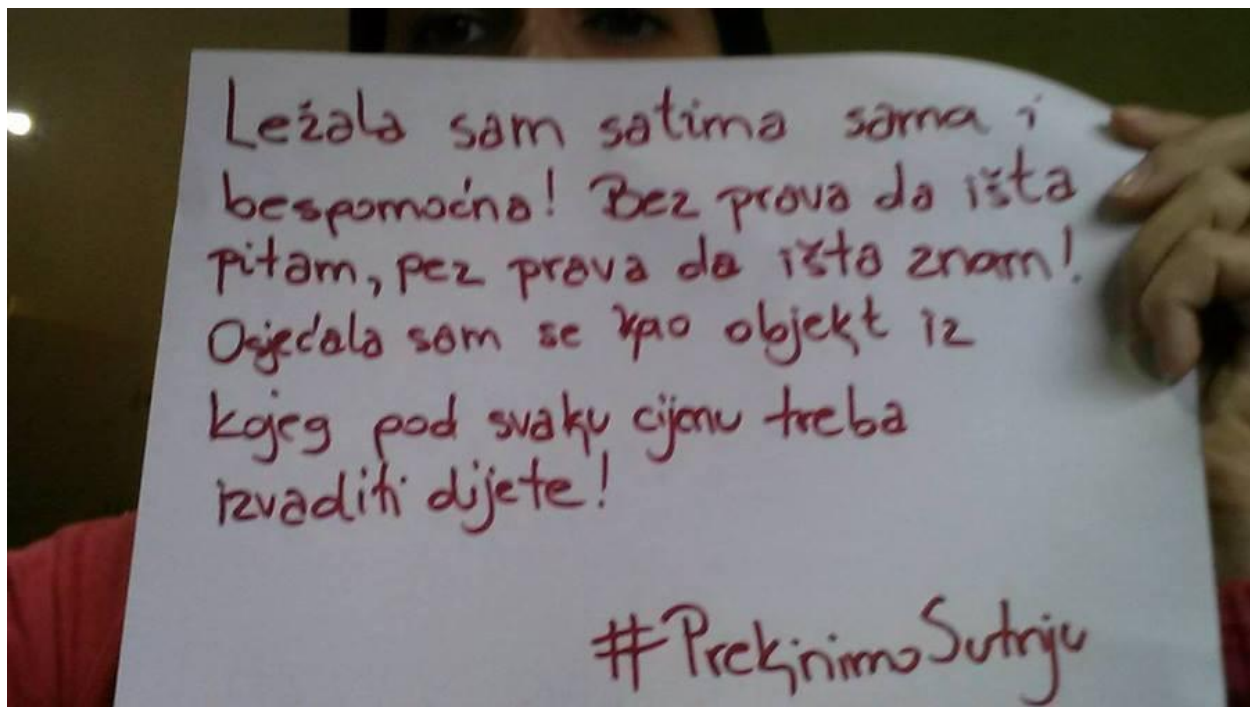 Ležala sam satima sama i
bespomoćna! Bez prava da išta
pitam, pez prava da išta znam!
Osjećala sam se kao objekt iz
kojeg pod svaku cijenu treba
izvaditi dijete!
#PrekinimoŠutnju